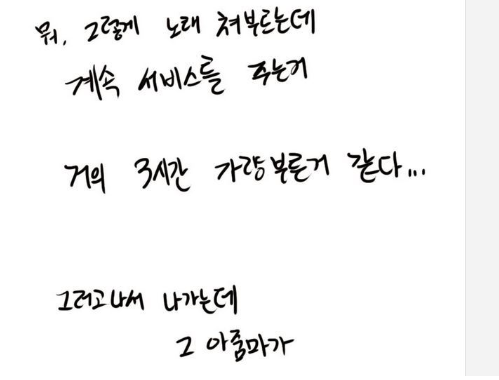 뭐, 그렇게 노래 쳐부르는데
계속 서비스를 주는거
거의 3시간 가량부른거 같다...
그러고나서 나가는데
그 아줌마가